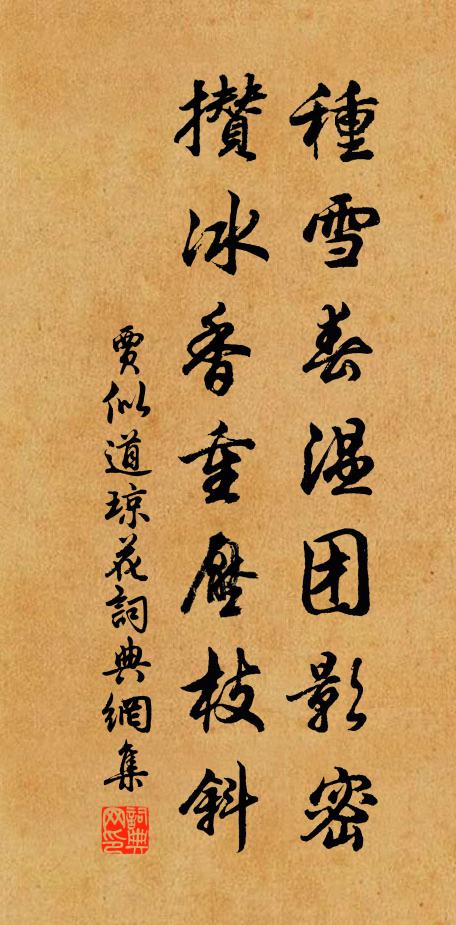 種雪春温团影密
攅冰香重壓枝斜
賈似道琼花詞典網集
詞典网印